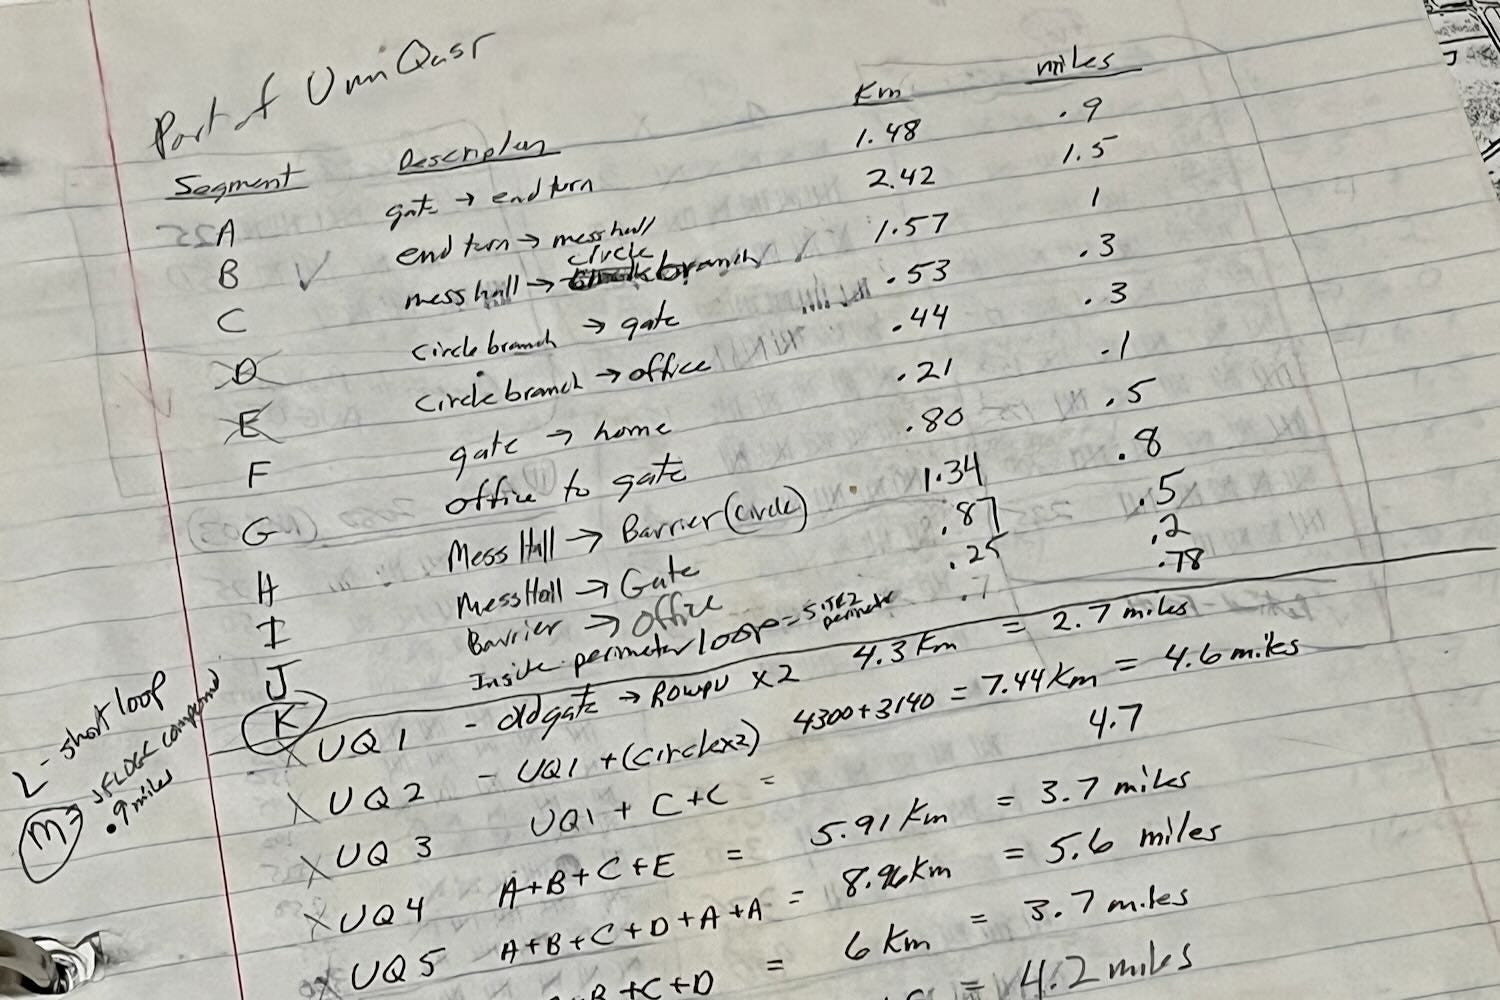 Port of Umm Qasr
Segment Description Km miles
A gate → end turn 1.48 .9
B end turn → mess hall 2.42 1.5
C mess hall → circle branch 1.57 1
D circle branch → gate .53 .3
E circle branch → office .44 .3
F gate → home .21 .1
G office to gate .80 .5
H Mess Hall → Barrier (circle) 1.34 .8
I Mess Hall → Gate .87 .5
J Barrier → office .25 .2
K Inside perimeter loop = SITE 2 perimeter .7 .78
L - short loop
M = JFLOGC compound
.9 miles
X UQ 1 - old gate → ROWPU x 2 4.3 Km = 2.7 miles
X UQ 2 - UQ1 + (circle x2) 4300 + 3140 = 7.44 Km = 4.6 miles
X UQ 3 UQ1 + C + C = 4.7
X UQ 4 A+B+C+E = 5.91 Km = 3.7 miles
X UQ 5 A+B+C+D+A+A = 8.96 Km = 5.6 miles
+B+C+D = 6 Km = 3.7 miles
= 4.2 miles